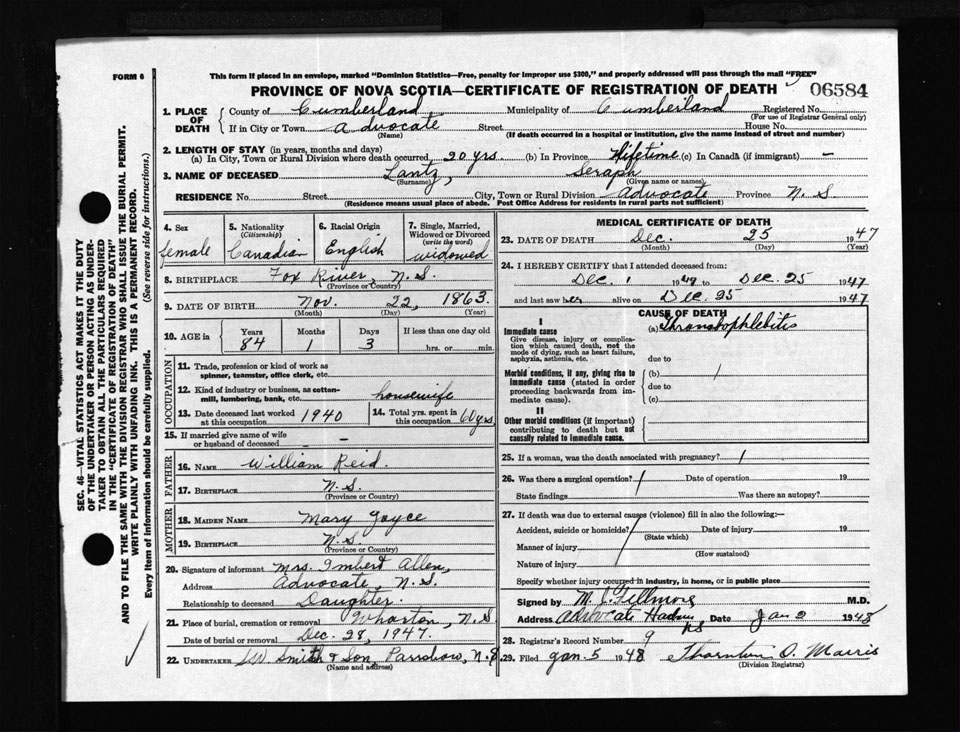 FORM 6
This form if placed in an envelope, marked "Dominion Statistics—Free, penalty for improper use $300," and properly addressed will pass through the mail "FREE"
PROVINCE OF NOVA SCOTIA—CERTIFICATE OF REGISTRATION OF DEATH
06584
1. PLACE OF DEATH
County of Cumberland Municipality of Cumberland Registered No.
(For use of Registrar General only)
If in City or Town Advocate Street House No.
(Name) (If death occurred in a hospital or institution, give the name instead of street and number)
2. LENGTH OF STAY (in years, months and days)
(a) In City, Town or Rural Division where death occurred 20 yrs. (b) In Province Lifetime (c) In Canada (if immigrant) —
3. NAME OF DECEASED Lantz, Seraph
(Surname) (Given name or names)
RESIDENCE No. Street City, Town or Rural Division Advocate Province N. S
(Residence means usual place of abode. Post Office Address for residents in rural parts not sufficient)
4. Sex
female
5. Nationality
(Citizenship)
Canadian
6. Racial Origin
English
7. Single, Married, Widowed or Divorced
(write the word)
widowed
8. BIRTHPLACE Fox River, N. S.
(Province or Country)
9. DATE OF BIRTH Nov. 22, 1863.
(Month) (Day) (Year)
10. AGE in
Years Months Days If less than one day old
84 1 3 hrs. or min.
OCCUPATION
11. Trade, profession or kind of work as spinner, teamster, office clerk, etc.
12. Kind of industry or business, as cotton-mill, lumbering, bank, etc. housewife
13. Date deceased last worked at this occupation 1940
14. Total yrs. spent in this occupation 60 yrs
15. If married give name of wife or husband of deceased —
FATHER
16. NAME William Reid.
17. BIRTHPLACE N. S.
(Province or Country)
MOTHER
18. MAIDEN NAME Mary Joyce
19. BIRTHPLACE N. S.
(Province or Country)
20. Signature of informant Mrs. Imbert Allen,
Address Advocate, N. S.
Relationship to deceased Daughter.
21. Place of burial, cremation or removal Wharton, N. S
Date of burial or removal Dec. 28, 1947.
22. UNDERTAKER Smith & Son, Parrsboro, N. S.
(Name and address)
MEDICAL CERTIFICATE OF DEATH
23. DATE OF DEATH Dec. 25 1947
(Month) (Day) (Year)
24. I HEREBY CERTIFY that I attended deceased from:
Dec. 1 1947 to Dec. 25 1947
and last saw her alive on Dec. 25 1947
CAUSE OF DEATH
I
Immediate cause
Give disease, injury or complication which caused death, not the mode of dying, such as heart failure, asphyxia, asthenia, etc.
(a) Thrombophlebitis
due to
Morbid conditions, if any, giving rise to immediate cause (stated in order proceeding backwards from immediate cause).
(b)
due to
(c)
II
Other morbid conditions (if important) contributing to death but not causally related to immediate cause.
25. If a woman, was the death associated with pregnancy?
26. Was there a surgical operation? Date of operation 19
State findings Was there an autopsy?
27. If death was due to external causes (violence) fill in also the following:—
Accident, suicide or homicide? Date of injury 19
(State which)
Manner of injury
(How sustained)
Nature of injury
Specify whether injury occurred in industry, in home, or in public place
Signed by Fillmore M.D.
Address Advocate NS Date Jan 2 1948
28. Registrar's Record Number 9
29. Filed Jan. 5 1948 O. Morris
(Division Registrar)
SEC. 46—VITAL STATISTICS ACT MAKES IT THE DUTY
OF THE UNDERTAKER OR PERSON ACTING AS UNDER-
TAKER TO OBTAIN ALL THE PARTICULARS REQUIRED
IN THE "CERTIFICATE OF REGISTRATION OF DEATH"
AND TO FILE THE SAME WITH THE DIVISION REGISTRAR WHO SHALL ISSUE THE BURIAL PERMIT.
WRITE PLAINLY WITH UNFADING INK. THIS IS A PERMANENT RECORD.
Every item of information should be carefully supplied. (See reverse side for instructions.)